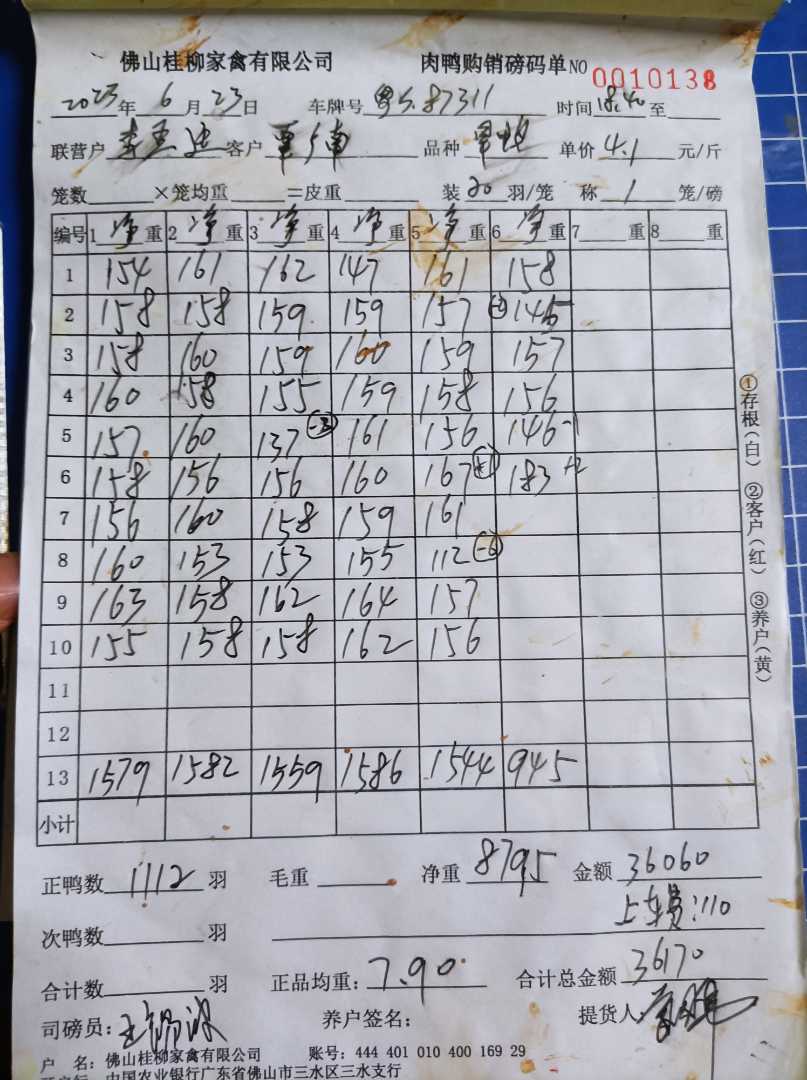 佛山桂柳家禽有限公司 肉鸭购销磅码单NO 0010138
2023年 6月 23日 车牌号 粤S.87311 时间 18:40 至
联营户 客户 覃 品种 单价 4.1 元/斤
笼数 ×笼均重 =皮重 装 20 羽/笼 称 1 笼/磅
编号 1 净 重 2 净 重 3 净 重 4 净 重 5 净 重 6 净 重 7 重 8 重
1 154 161 162 147 161 158
2 158 158 159 159 157 146
3 158 160 159 160 159 157
4 160 158 155 159 158 156
5 157 160 137 (-3) 161 156 146 -1
6 158 156 156 160 167 (+1) 183 +2
7 156 160 158 159 161
8 160 153 153 155 112 (-6)
9 163 158 162 164 157
10 155 158 158 162 156
11
12
13 1579 1582 1559 1586 1544 945
小计
①存根(白) ②客户(红) ③养户(黄)
正鸭数 1112 羽 毛重 净重 8795 金额 36060
上车费:110
次鸭数 羽
合计数 羽 正品均重: 7.90 合计总金额 36170
司磅员: 养户签名: 提货人:
户 名: 佛山桂柳家禽有限公司 账号: 444 401 010 400 169 29
开户行: 中国农业银行广东省佛山市三水区三水支行